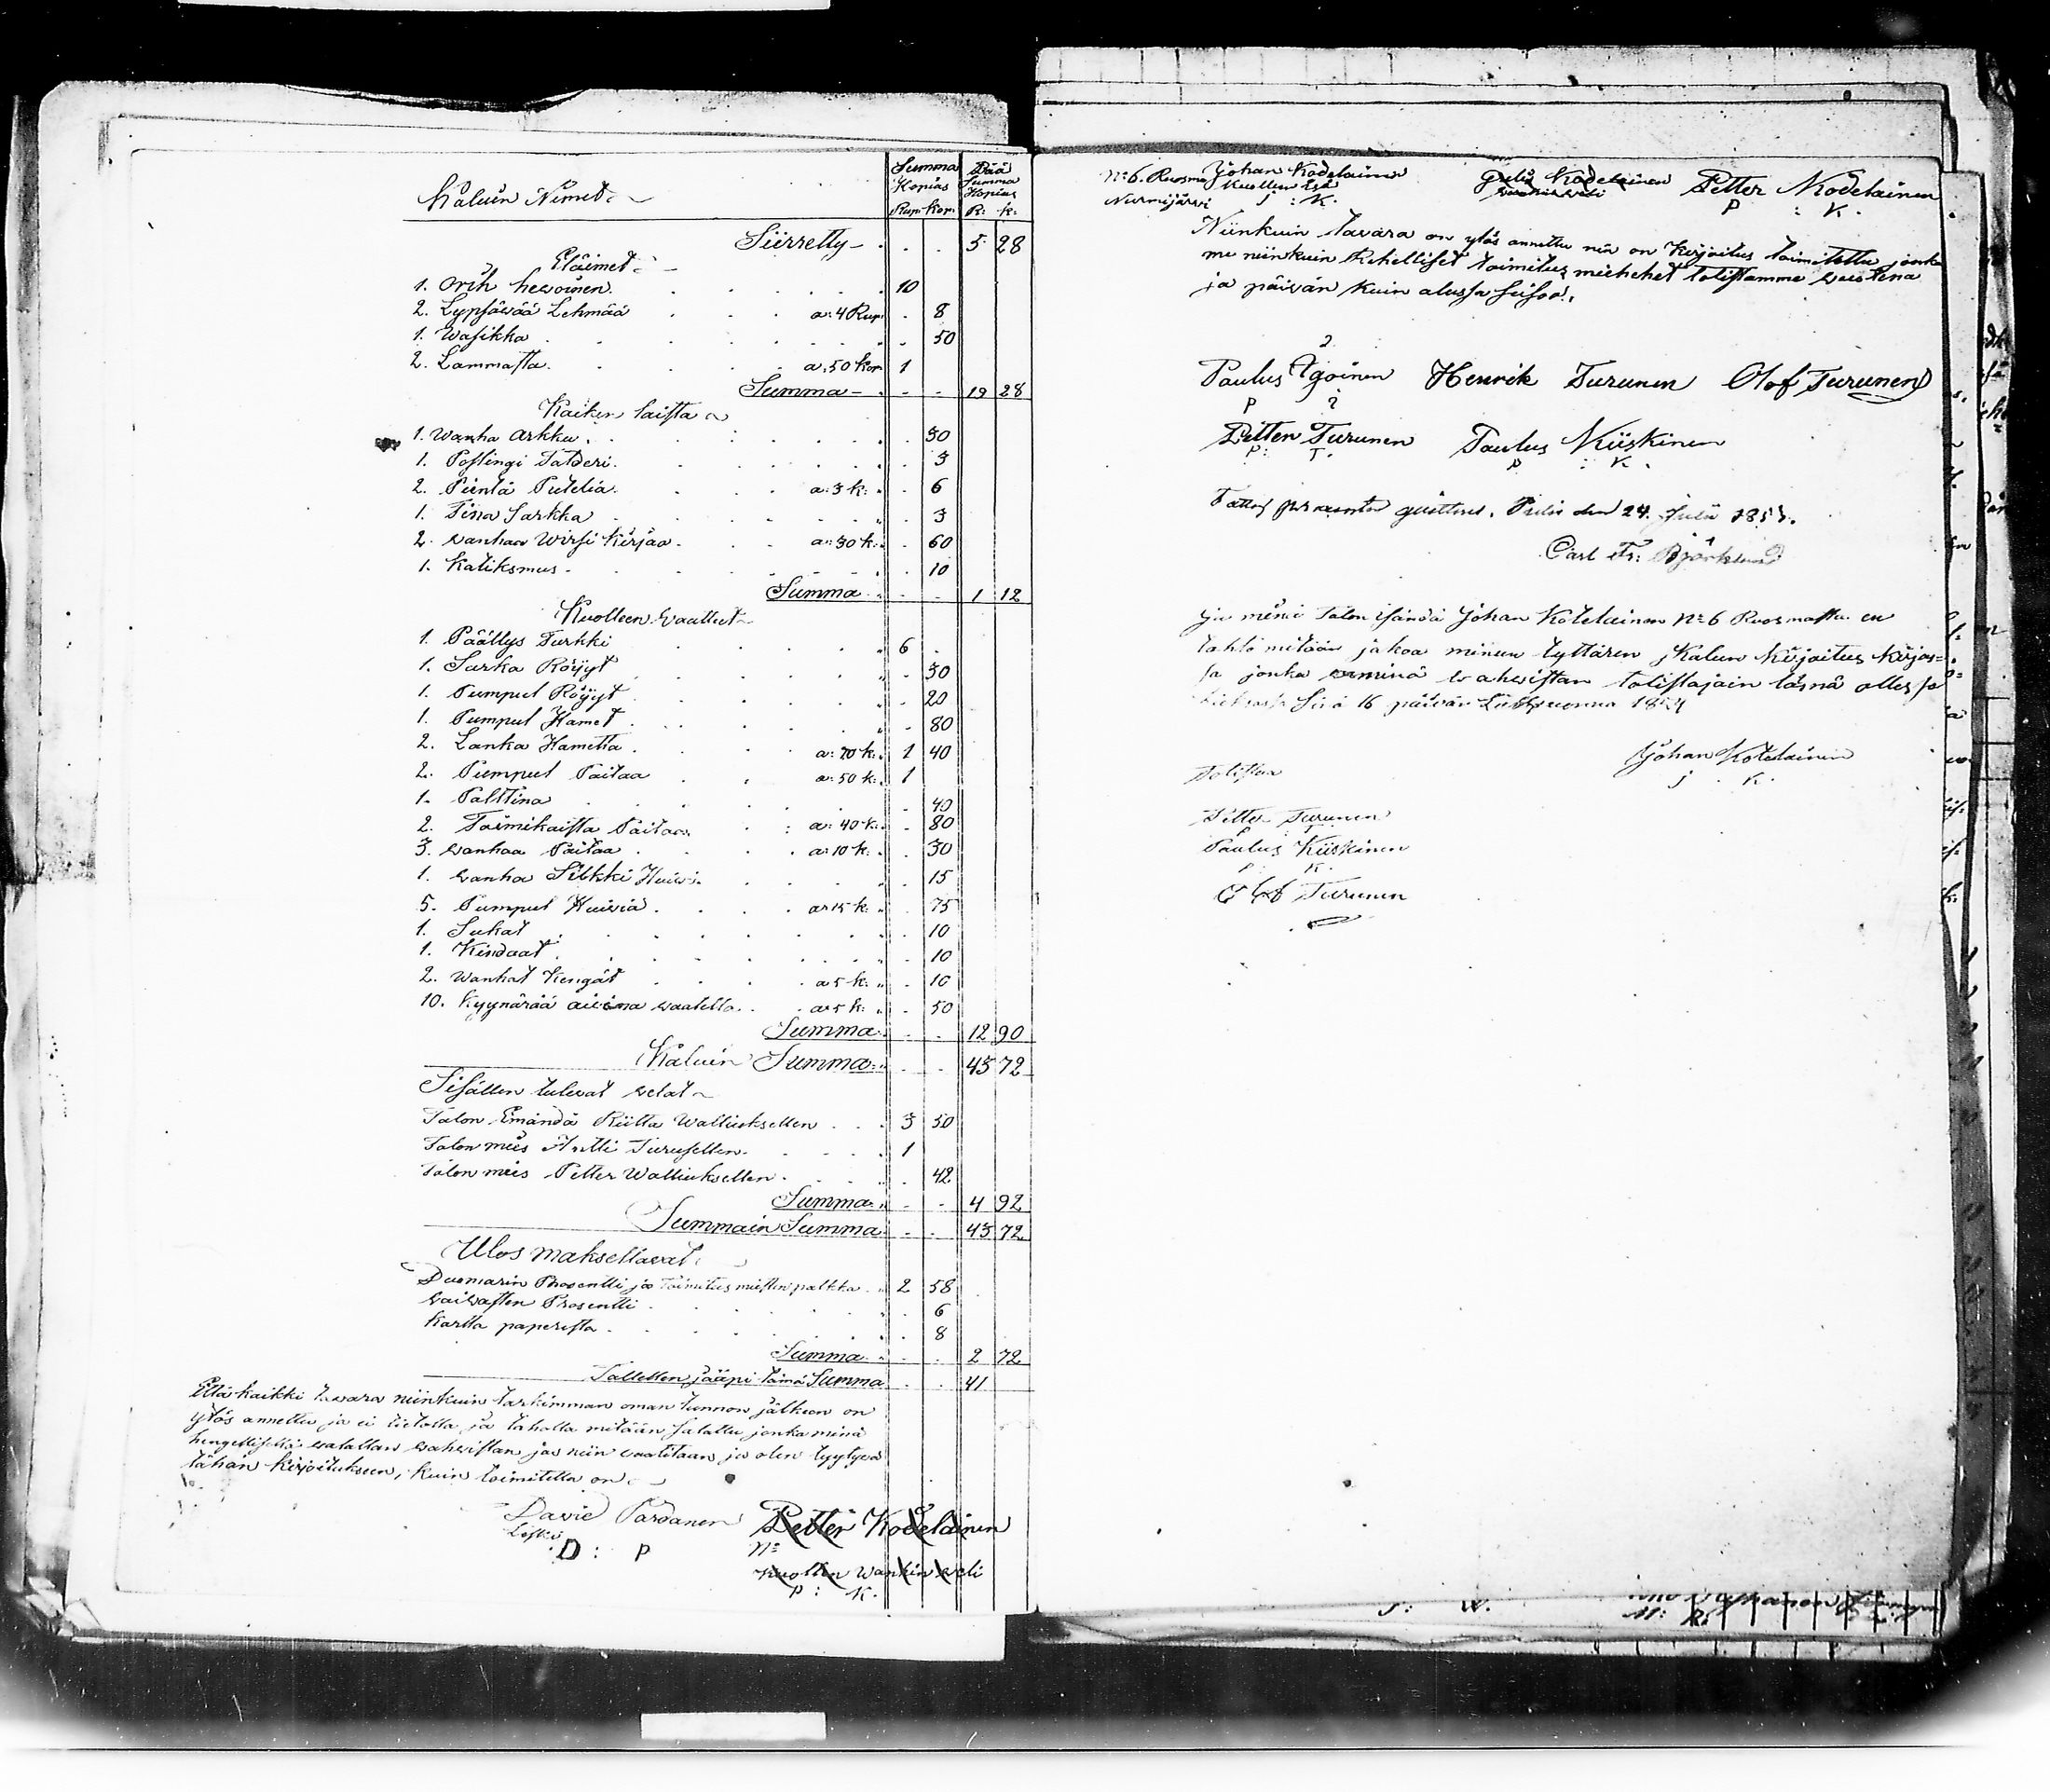 Kaluin Nimet
Summa Hopias Pää Summa Hopias
Rup. Kop. R: K:
Siirretty 5 28
Eläimet
1. Orih hewoinen 10
2. Lypsäwää Lehmää a: 4 Rup. 8
1. Wasikka 50
2. Lammasta a: 50 kop. 1
Summa 19 28
Kaiken laista
1. Wanha arkku 30
1. Postingi Talderi 3
2. Pientä Putelia a: 3 k: 6
1. Tina Sarkka 3
2. wanhaa Wirsi kirjaa a: 30 k: 60
1. Katiksmus 10
Summa 1 12
Kuolleen waattet
1. Päällys Turkki 6
1. Sarka Röijyt 30
1. Pumpul Röijyt 20
1. Pumpul Hamet 80
2. Lanka Hametta a: 70 k: 1 40
2. Pumpul Paitaa a: 50 k: 1
1. Palttina 40
2. Toimikaista Paitaa a: 40 k: 80
3. wanhaa Paitaa a: 10 k: 30
1. wanha Silkki Huiwi 15
5. Pumpul Huiwia a: 15 k: 75
1. Sukat 10
1. Kindaat 10
2. Wanhat kengät a 5 k: 10
10. kyynärää aiwina waatetta a: 5 k: 50
Summa 12 90
Kaluin Summa 43 72
Sisällen tulewat welat
Talon Emändä Riitta Walliuksellen 3 50
Talon mies Antti Turusellen 1
Talon mies Petter Walliuksellen 42
Summa 4 92
Summain Summa 43 72
Ulos maksettawat
Duomarin Prosentti ja Toimitus miesten palkka 2 58
waiwasten Prosentti 6
Kartta paperista 8
Summa 2 72
Tallellen jääpi tämä Summa 41
Että kaikki tawara niinkuin tarkimman oman tunnon jälkeen on
ylös annettu, ja ei tietolla ja taholla mitään salattu, jonka minä
hengellisellä walallan wahwistan jos niin waatitaan, ja olen tyytywä
tähän kirjoitukseen, kuin toimitettu on
David Pardanen Petter Kodelainen
Leski No
D: P kuollen wankin weli
P: K.
No 6. Ruosma Johan Kodelainen Kodelainen Petter Kodelainen
Nurmijärwi Kuollen Isä P : K.
J : K.
Niinkuin tawara on ylös annettu niin on kirjoitus toimitettu, jonka
me niinkuin Rehelliset toimitus miehet totistamme wuotena
ja päiwän kuin alussa seisoo.
Paulus Henrik Turunen Olof Turunen
Petter Turunen Paulus Kiiskinen
P: T. P : K.
Fattig procenten quitteras. Pielis den 24. Julii 185
Carl Fr: Björklund
Ja minä Talon isändä Johan Kotelainen No 6 Ruosmasta en
tahto mitään jakoa minun tyttären Kalun kirjoitus kirjas=
sa jonka minä wahwistan totistajain läsnä olles sa
Sinä 16 päiwän
Johan Kotelainen
J K.
Totistaa
Petter Turunen
P T
Paulus Kiiskinen
P K.
Olof Turunen
J: W.